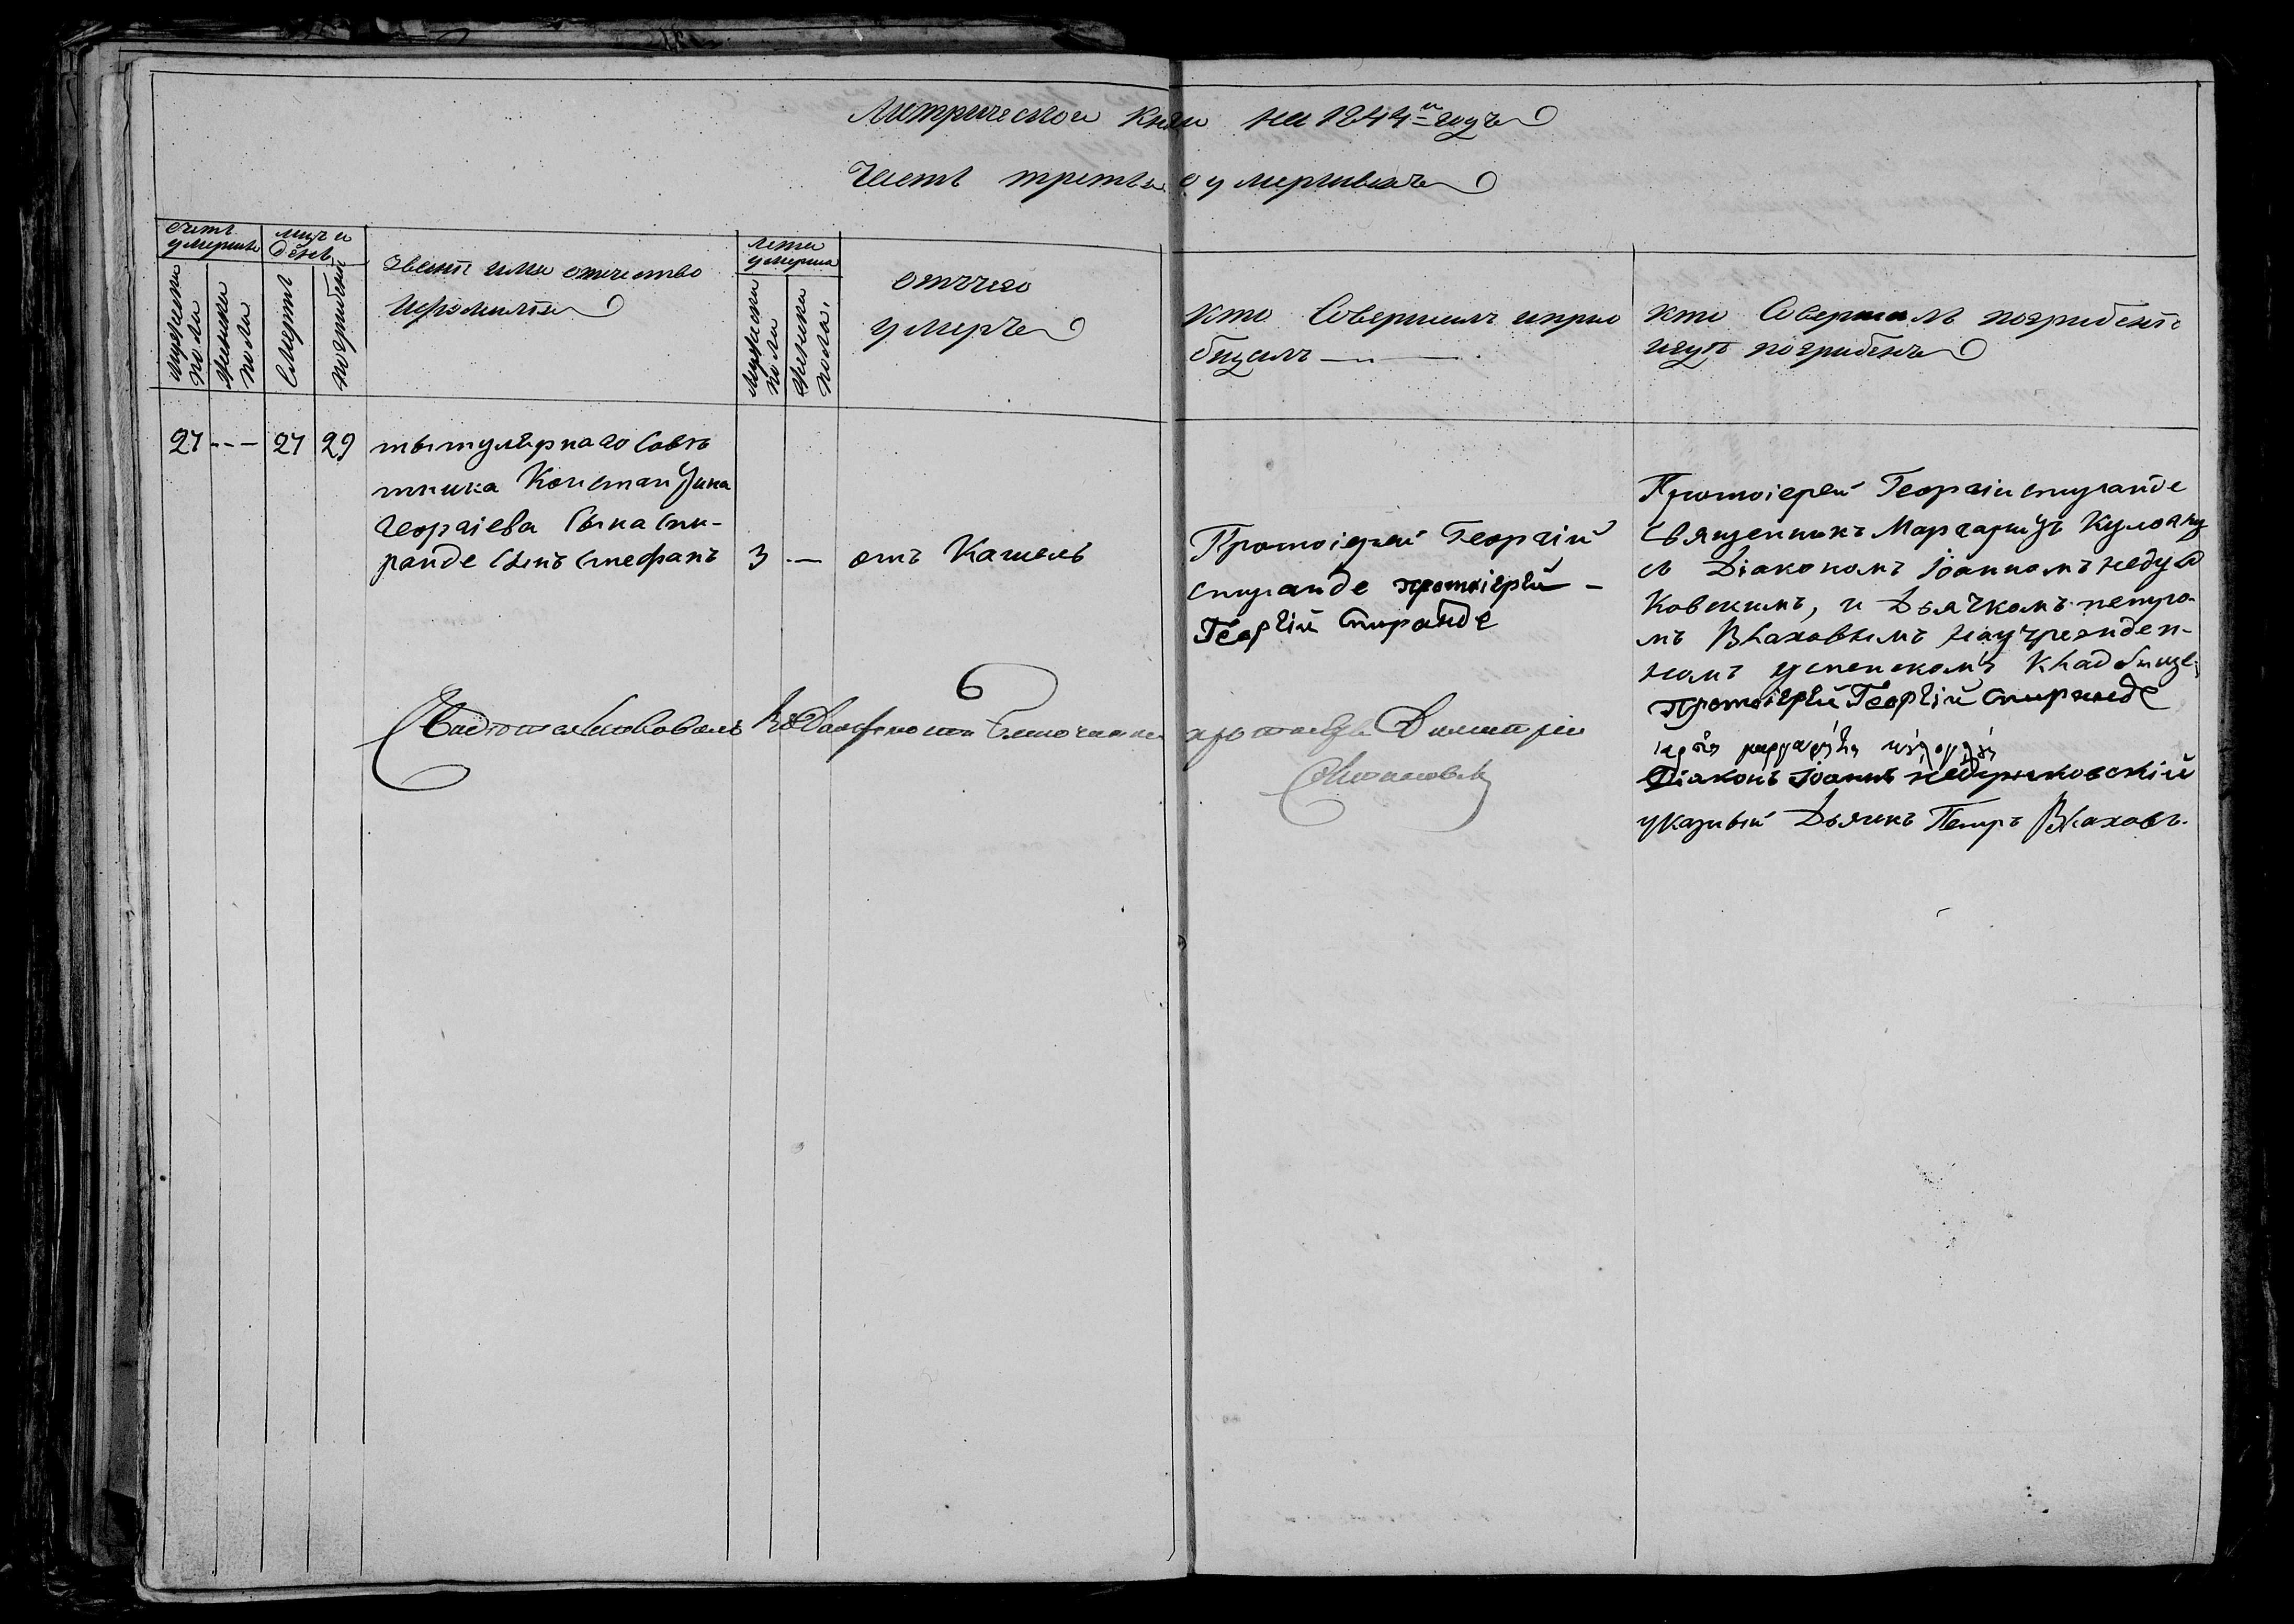 Метрической книги на 1844й годъ
Часть третья о умершихъ
счетъ умерших
мужеска пола
женска пола
мцъ и день
смерти
погребени
звание имя отчество
и фамилія
лета умерша
мужеска пола
женска пола,
отъ чего
умеръ
кто Совершилъ и прио
бщалъ
кто Совершалъ погребение
и гдѣ погребенъ
27 --- 27 29 тытулярнаго Совѣ
тника Константина
Георгіева Сына Спи-
ранде сынъ Стефанъ 3 — отъ Кашель
Протоіерей Георгій
спиранде протоіерей -
Георгій Спиранде
Протоіерей Георгіи спиранде
Священникъ Маргаритъ
съ Діакономъ Іоанномъ недзел
ковскимъ, и Дьячкомъ петро-
мъ Влаховымъ на учрежден-
номъ успенскомъ Кладбище
Протоіерей Георгій Спиранде
Діаконъ Іоаннъ
указный Дьячкъ Петръ Влаховъ.
6
протоіерей Димитрій